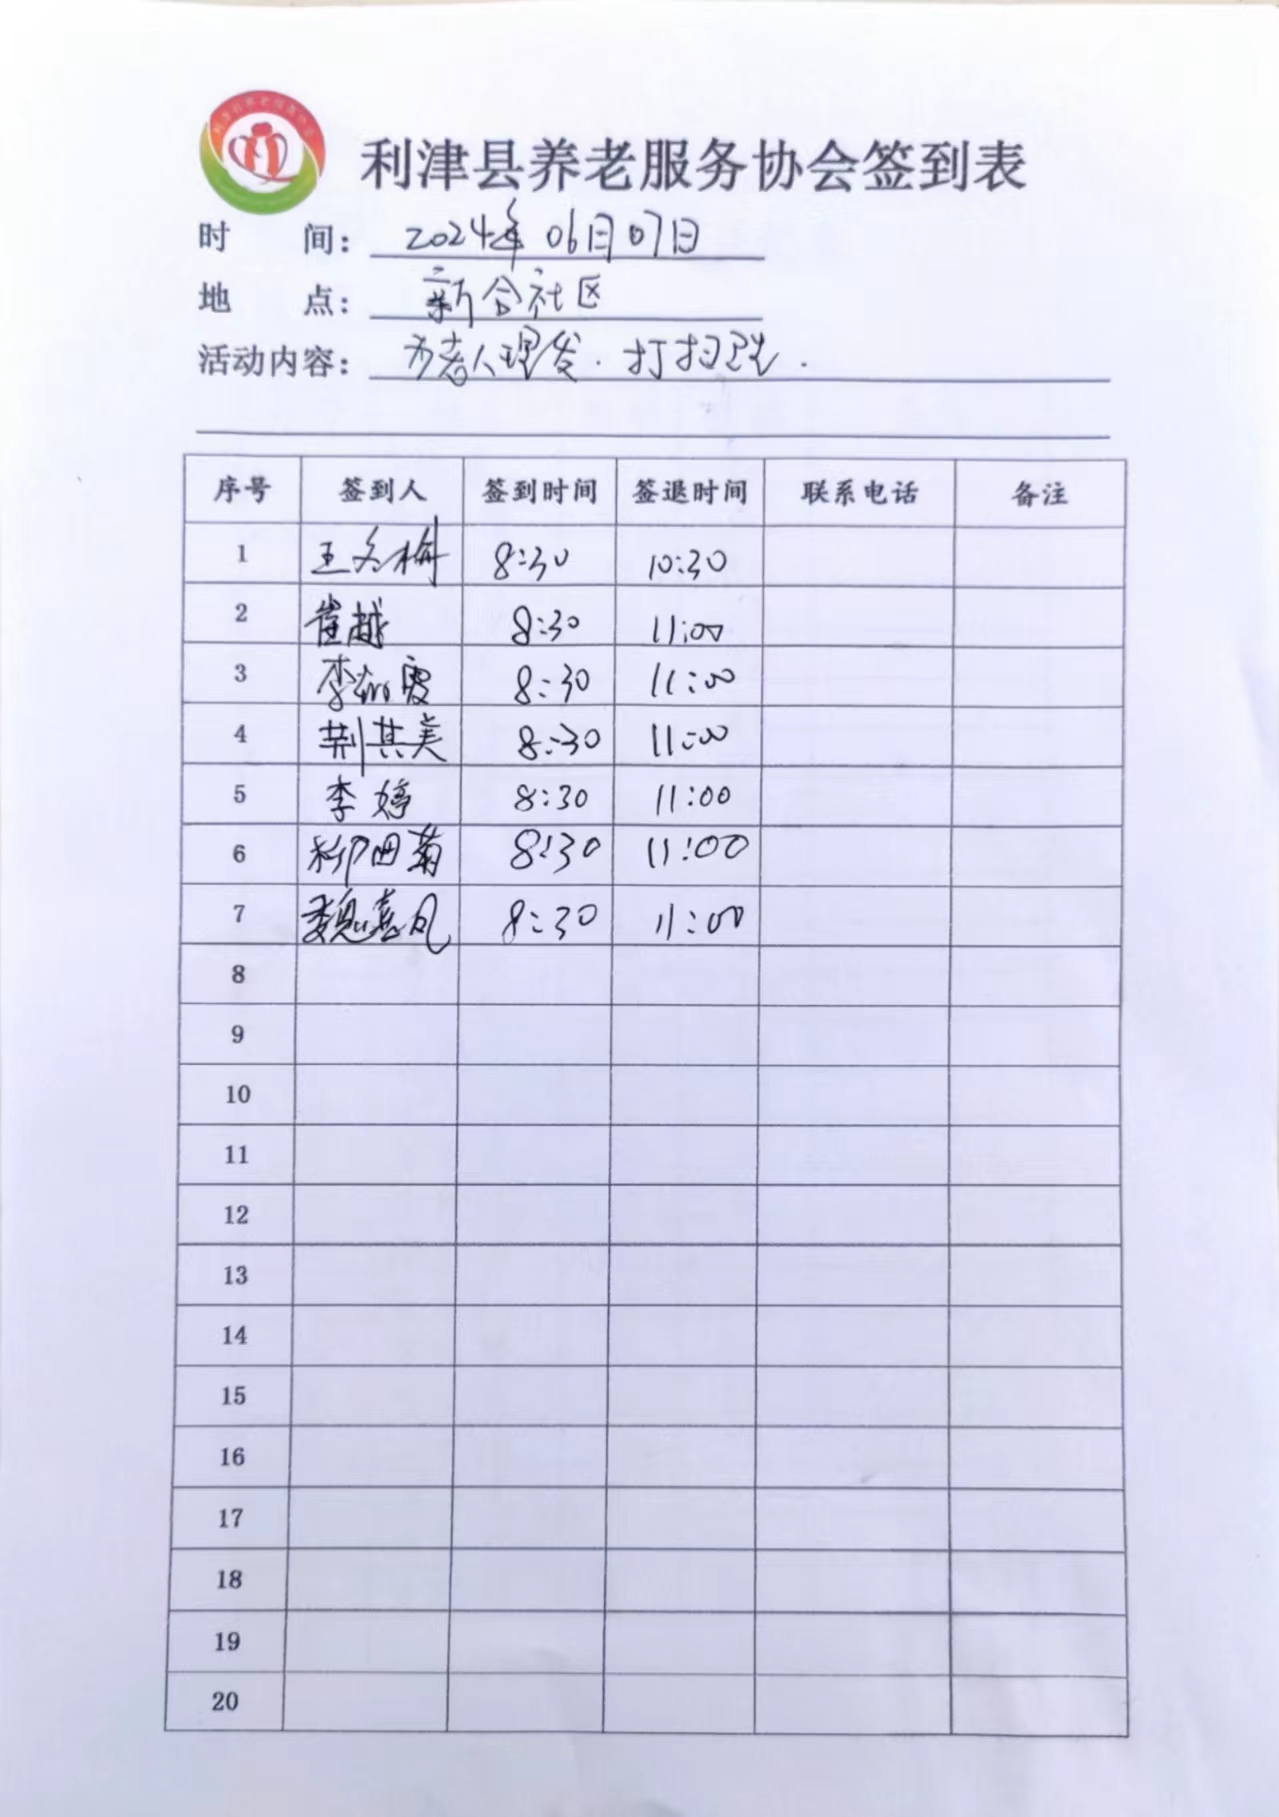 利津县养老服务协会
利津县养老服务协会签到表
时 间: 2024年06月07日
地 点: 新合社区
活动内容: 为老人理发.打扫卫生.
序号 签到人 签到时间 签退时间 联系电话 备注
1 王冬梅 8:30 10:30
2 崔越 8:30 11:00
3 李 霞 8:30 11:00
4 荆其美 8:30 11:00
5 李婷 8:30 11:00
6 柳田菊 8:30 11:00
7 魏喜凤 8:30 11:00
8
9
10
11
12
13
14
15
16
17
18
19
20